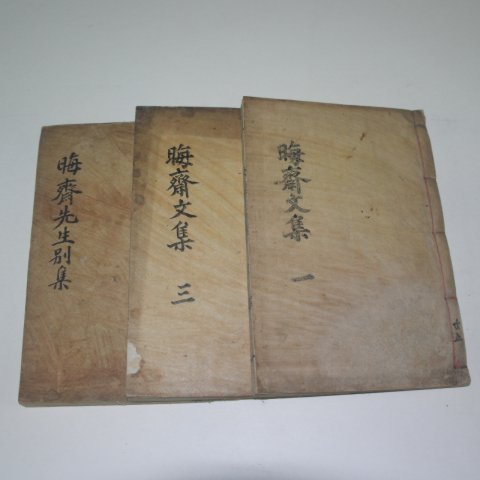 晦齋文集 一
晦齋文集 三
晦齊先生別集